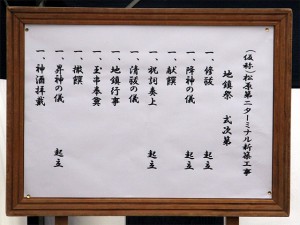 (仮称)松原第二ターミナル新築工事
地鎮祭 式次第
一、修祓 起立
一、降神の儀 起立
一、献饌
一、祝詞奏上 起立
一、清祓の儀
一、地鎮行事
一、玉串奉奠
一、撤饌
一、昇神の儀 起立
一、神酒拝戴